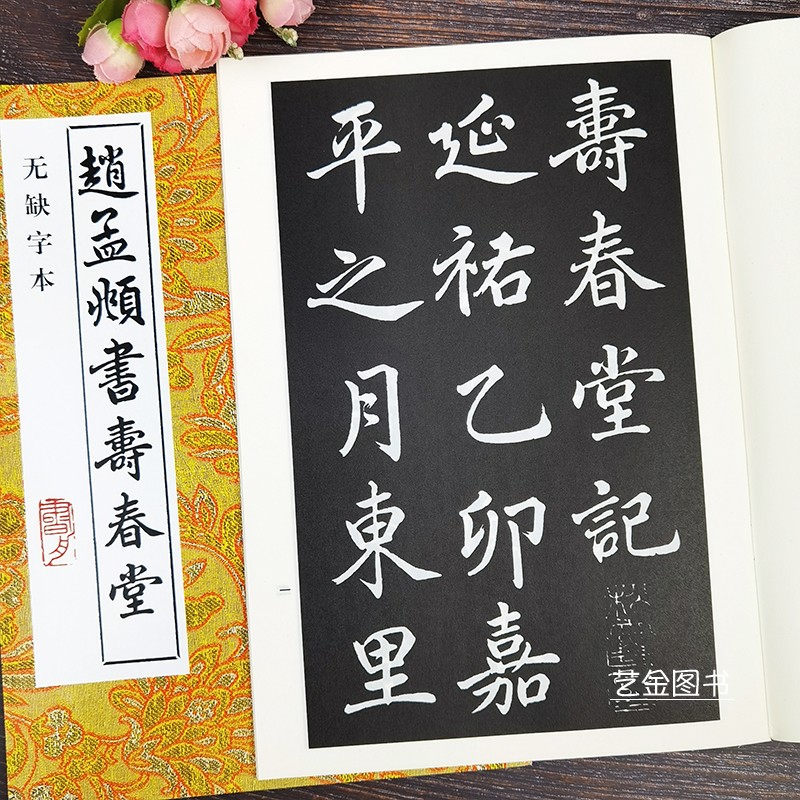 趙孟頫書壽春堂
无缺字本
壽春堂記
延祐乙卯嘉
平之月東里
一
艺金图书